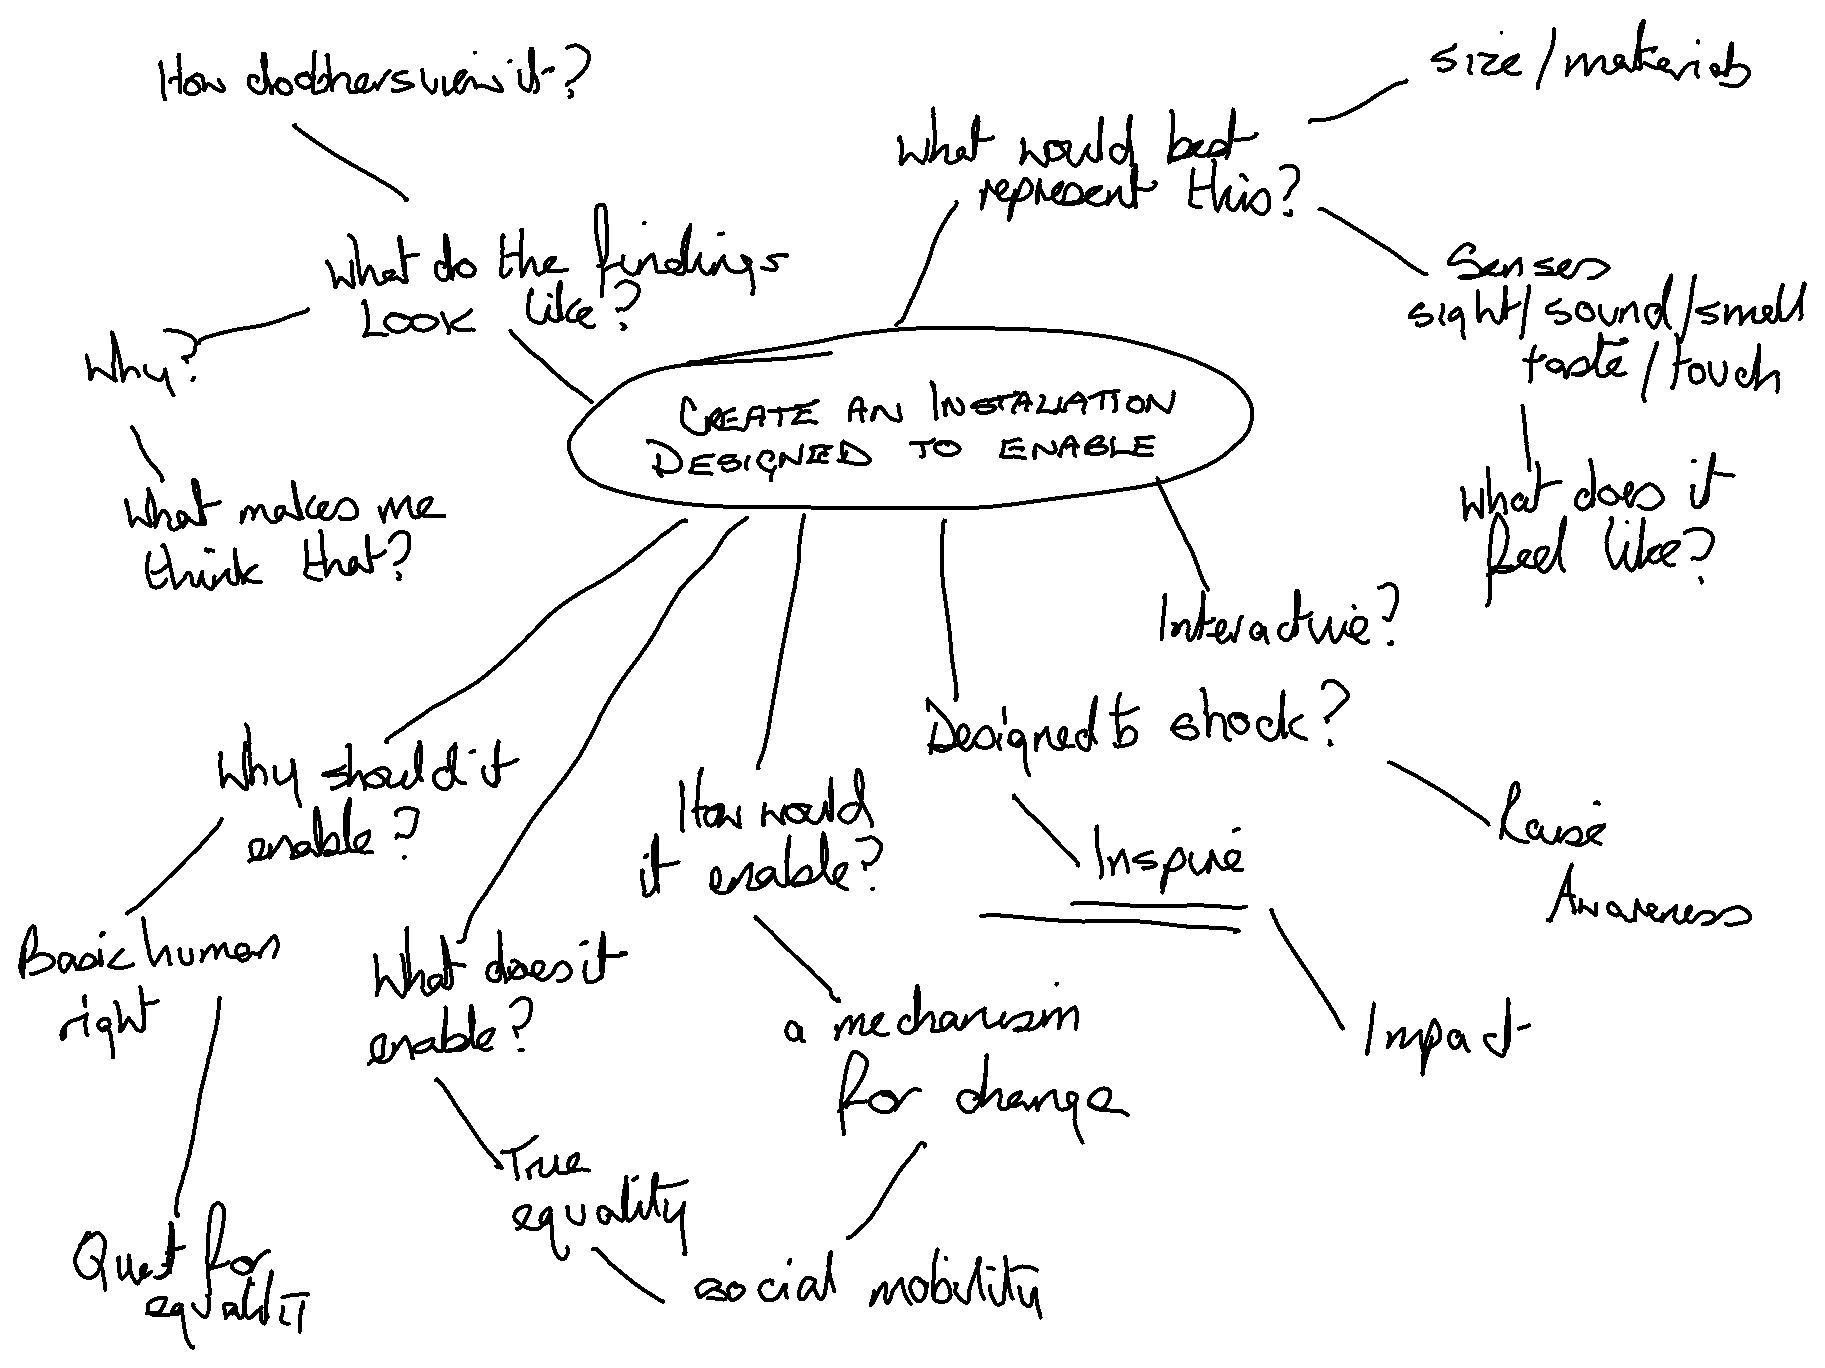 How do others view it?
size/materials
What would best
represent this?
What do the findings
LOOK like?
Senses
sight/sound/smell
taste/touch
Why?
CREATE AN INSTALLATION
DESIGNED TO ENABLE
What makes me
think that?
What does it
feel like?
Interactive?
Designed to shock?
Why should it
enable?
How would
it enable?
Inspire
Raise
Awareness
Basic human
right
What does it
enable?
a mechanism
for change
Impact
True
equality
Quest for
equality
social mobility